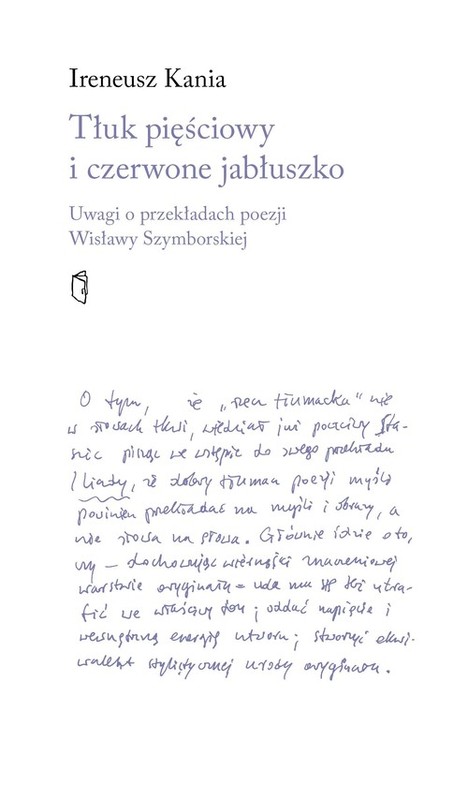 Ireneusz Kania
Tłuk pięściowy
i czerwone jabłuszko
Uwagi o przekładach poezji
Wisławy Szymborskiej
O tym, że „rzecz tłumacka” nie
w słowach tkwi, wiedział już poczciwy Sta-
szic pisząc we wstępie do swego przekładu
Iliady, iż dobry tłumacz poezji myśli
powinien przekładać na myśli i obrazy, a
nie słowa na słowa. Głównie idzie o to,
czy — dochowując wierności znaczeniowej
warstwie oryginału – uda mu się też utra-
fić we właściwy ton; oddać napięcie i
wewnętrzną energię utworu; stworzyć ekwi-
walent stylistycznej urody oryginału.